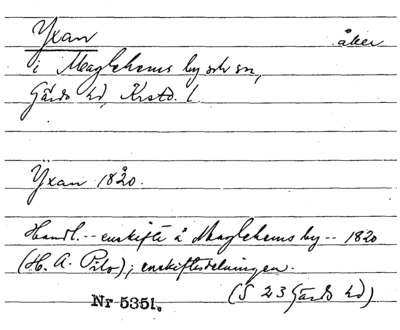 Yxan åker
i Maglehems by och sn,
Gärds hd, Krstd. l.
Yxan 1820.
Handl. -- enskifte å Maglehems by -- 1820
(H. A. Pilo); enskiftesdelningen.
Nr 5351. (S 23 Gärds hd)